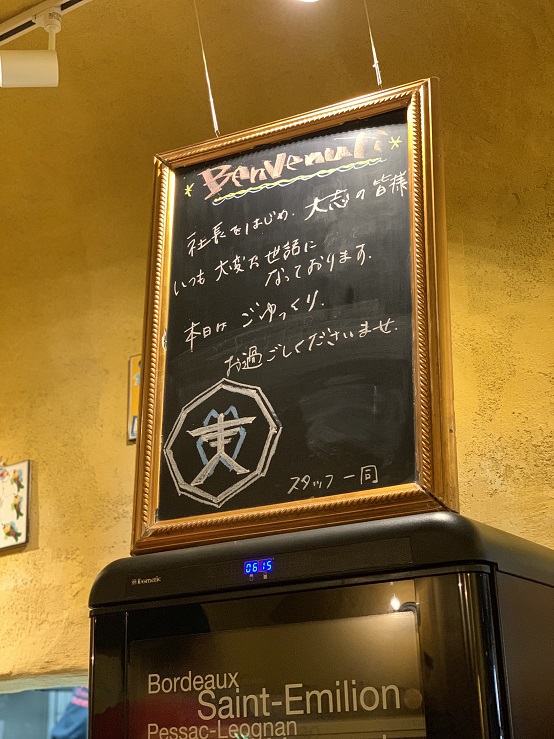 Benvenuti
社長をはじめ、大志の皆様
いつも大変お世話に
なっております。
本日はごゆっくり、
お過ごしくださいませ。
スタッフ一同
Dometic
06 15
Bordeaux
Saint-Emilion
Pessac-Leognan